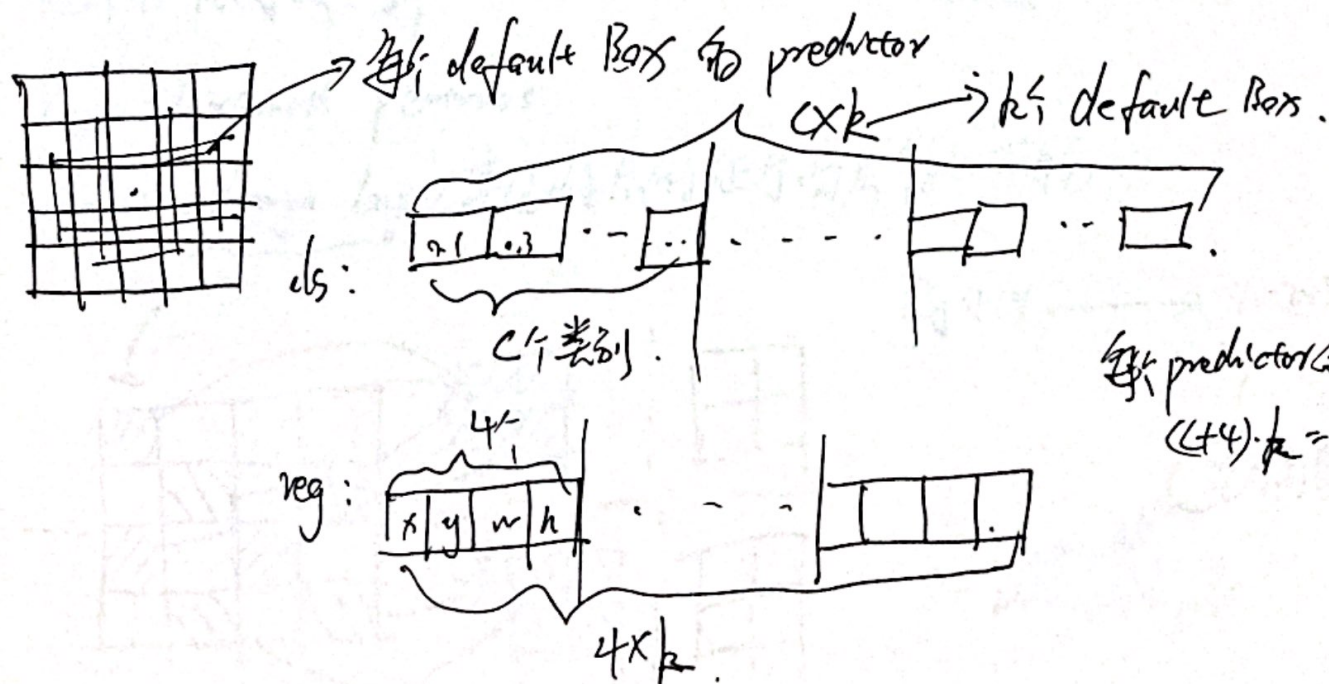 每个 default Box 的 predictor
c×k → k个 default Box.
cls:
0.1 0.3 ...
C个类别.
每个 predictor
(c+4)·k =
4个
reg:
x y w h
4×k.